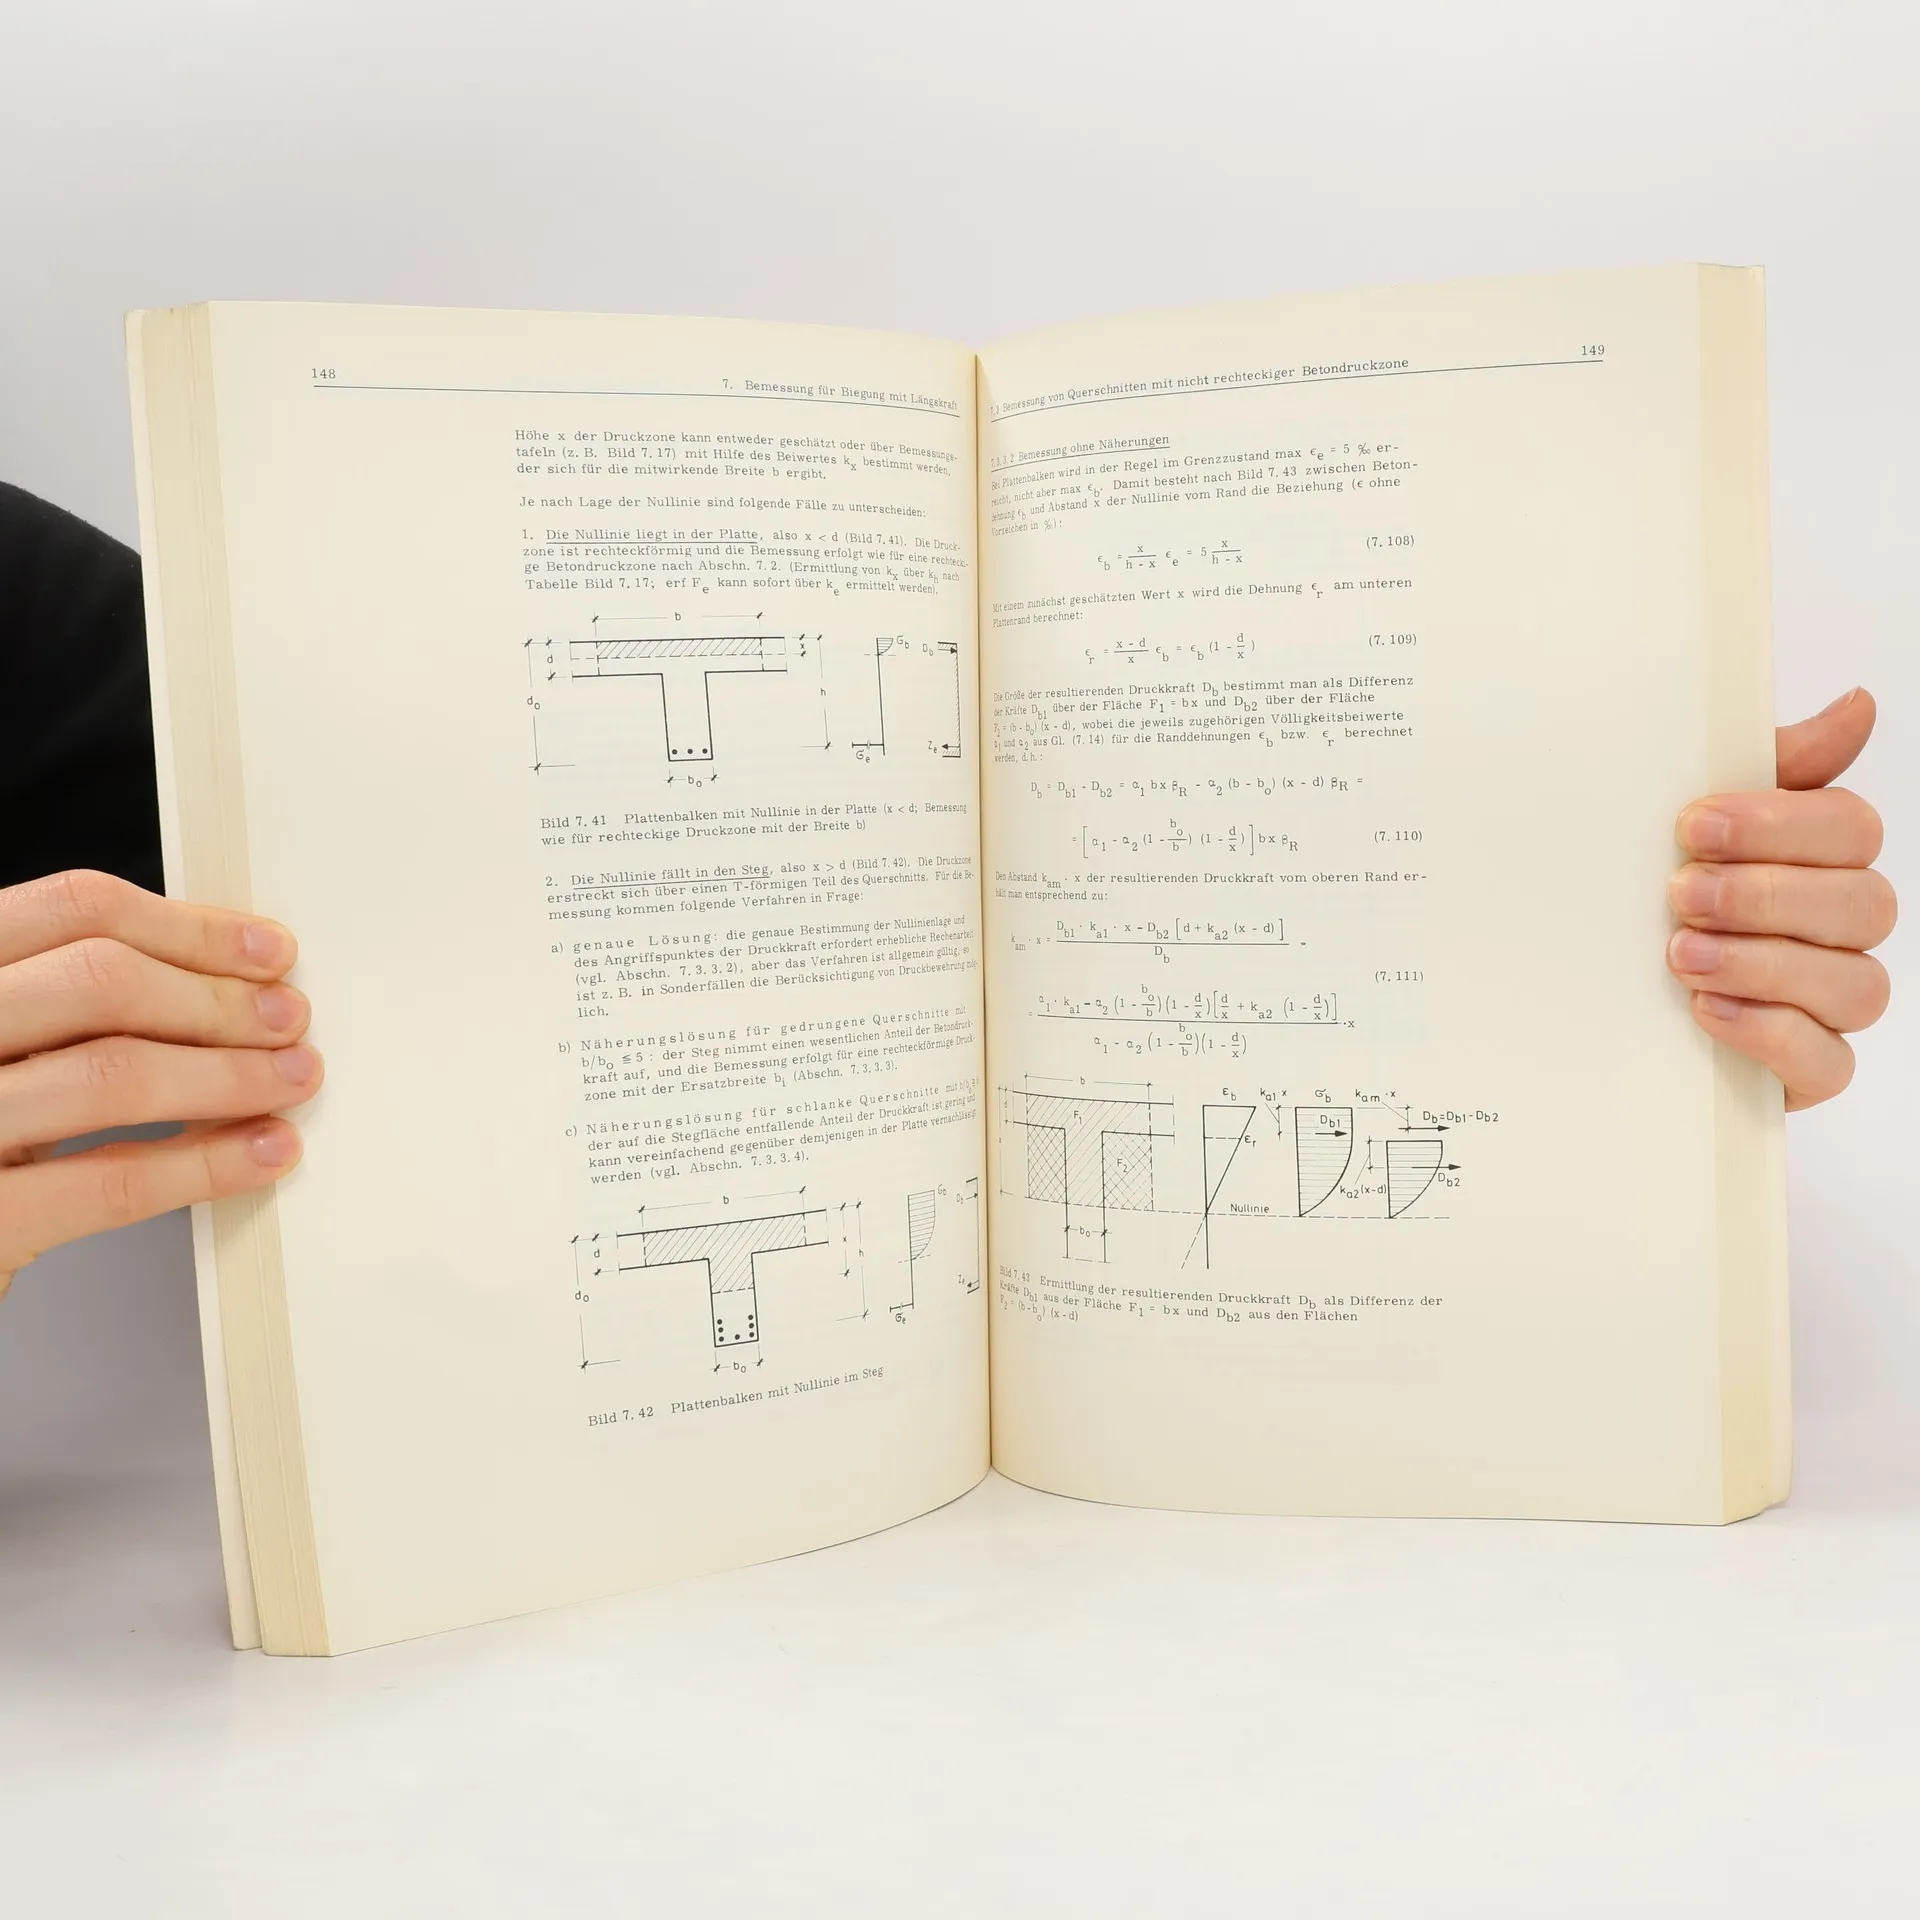 148
7. Bemessung für Biegung mit Längskraft
Höhe x der Druckzone kann entweder geschätzt oder über Bemessungs-
tafeln (z. B. Bild 7.17) mit Hilfe des Beiwertes kx bestimmt werden,
der sich für die mitwirkende Breite b ergibt.
Je nach Lage der Nullinie sind folgende Fälle zu unterscheiden:
1. Die Nullinie liegt in der Platte, also x < d (Bild 7.41). Die Druck-
zone ist rechteckförmig und die Bemessung erfolgt wie für eine rechtecki-
ge Betondruckzone nach Abschn. 7.2. (Ermittlung von kx über kh nach
Tabelle Bild 7.17; erf Fe kann sofort über ke ermittelt werden).
b
d
do
x
h
bo
σb
σe
Db
Ze
Bild 7.41 Plattenbalken mit Nullinie in der Platte (x < d; Bemessung
wie für rechteckige Druckzone mit der Breite b)
2. Die Nullinie fällt in den Steg, also x > d (Bild 7.42). Die Druckzone
erstreckt sich über einen T-förmigen Teil des Querschnitts. Für die Be-
messung kommen folgende Verfahren in Frage:
a) genaue Lösung: die genaue Bestimmung der Nullinienlage und
des Angriffspunktes der Druckkraft erfordert erhebliche Rechenarbeit
(vgl. Abschn. 7.3.3.2), aber das Verfahren ist allgemein gültig, so
ist z. B. in Sonderfällen die Berücksichtigung von Druckbewehrung mög-
lich.
b) Näherungslösung für gedrungene Querschnitte mit
b/bo ≦ 5 : der Steg nimmt einen wesentlichen Anteil der Betondruck-
kraft auf, und die Bemessung erfolgt für eine rechteckförmige Druck-
zone mit der Ersatzbreite bi (Abschn. 7.3.3.3).
c) Näherungslösung für schlanke Querschnitte mit b/bo
der auf die Stegfläche entfallende Anteil der Druckkraft ist gering und
kann vereinfachend gegenüber demjenigen in der Platte vernachlässigt
werden (vgl. Abschn. 7.3.3.4).
b
d
do
x
h
bo
σb
σe
Db
Ze
Bild 7.42 Plattenbalken mit Nullinie im Steg
149
7.3 Bemessung von Querschnitten mit nicht rechteckiger Betondruckzone
7.3.3.2 Bemessung ohne Näherungen
Bei Plattenbalken wird in der Regel im Grenzzustand max ϵe = 5 ‰ er-
reicht, nicht aber max ϵb. Damit besteht nach Bild 7.43 zwischen Beton-
dehnung ϵb und Abstand x der Nullinie vom Rand die Beziehung (ϵ ohne
Vorzeichen in ‰):
ϵb = x / (h - x) ϵe = 5 x / (h - x) (7.108)
Mit einem zunächst geschätzten Wert x wird die Dehnung ϵr am unteren
Plattenrand berechnet:
ϵr = (x - d) / x ϵb = ϵb (1 - d/x) (7.109)
Die Größe der resultierenden Druckkraft Db bestimmt man als Differenz
der Kräfte Db1 über der Fläche F1 = bx und Db2 über der Fläche
F2 = (b - bo) (x - d), wobei die jeweils zugehörigen Völligkeitsbeiwerte
α1 und α2 aus Gl. (7.14) für die Randdehnungen ϵb bzw. ϵr berechnet
werden, d.h.:
Db = Db1 - Db2 = α1 bx βR - α2 (b - bo) (x - d) βR =
= [α1 - α2 (1 - bo/b) (1 - d/x)] bx βR (7.110)
Den Abstand kam · x der resultierenden Druckkraft vom oberen Rand er-
hält man entsprechend zu:
kam · x = (Db1 · ka1 · x - Db2 [d + ka2 (x - d)]) / Db =
(7.111)
= (α1 · ka1 - α2 (1 - bo/b)(1 - d/x)[d/x + ka2 (1 - d/x)]) / (α1 - α2 (1 - bo/b)(1 - d/x)) · x
b
d
F1
F2
bo
εb
εr
Nullinie
ka1·x
σb
Db1
kam·x
Db=Db1-Db2
ka2(x-d)
Db2
Bild 7.43 Ermittlung der resultierenden Druckkraft Db als Differenz der
Kräfte Db1 aus der Fläche F1 = bx und Db2 aus den Flächen
F2 = (b-bo) (x-d)